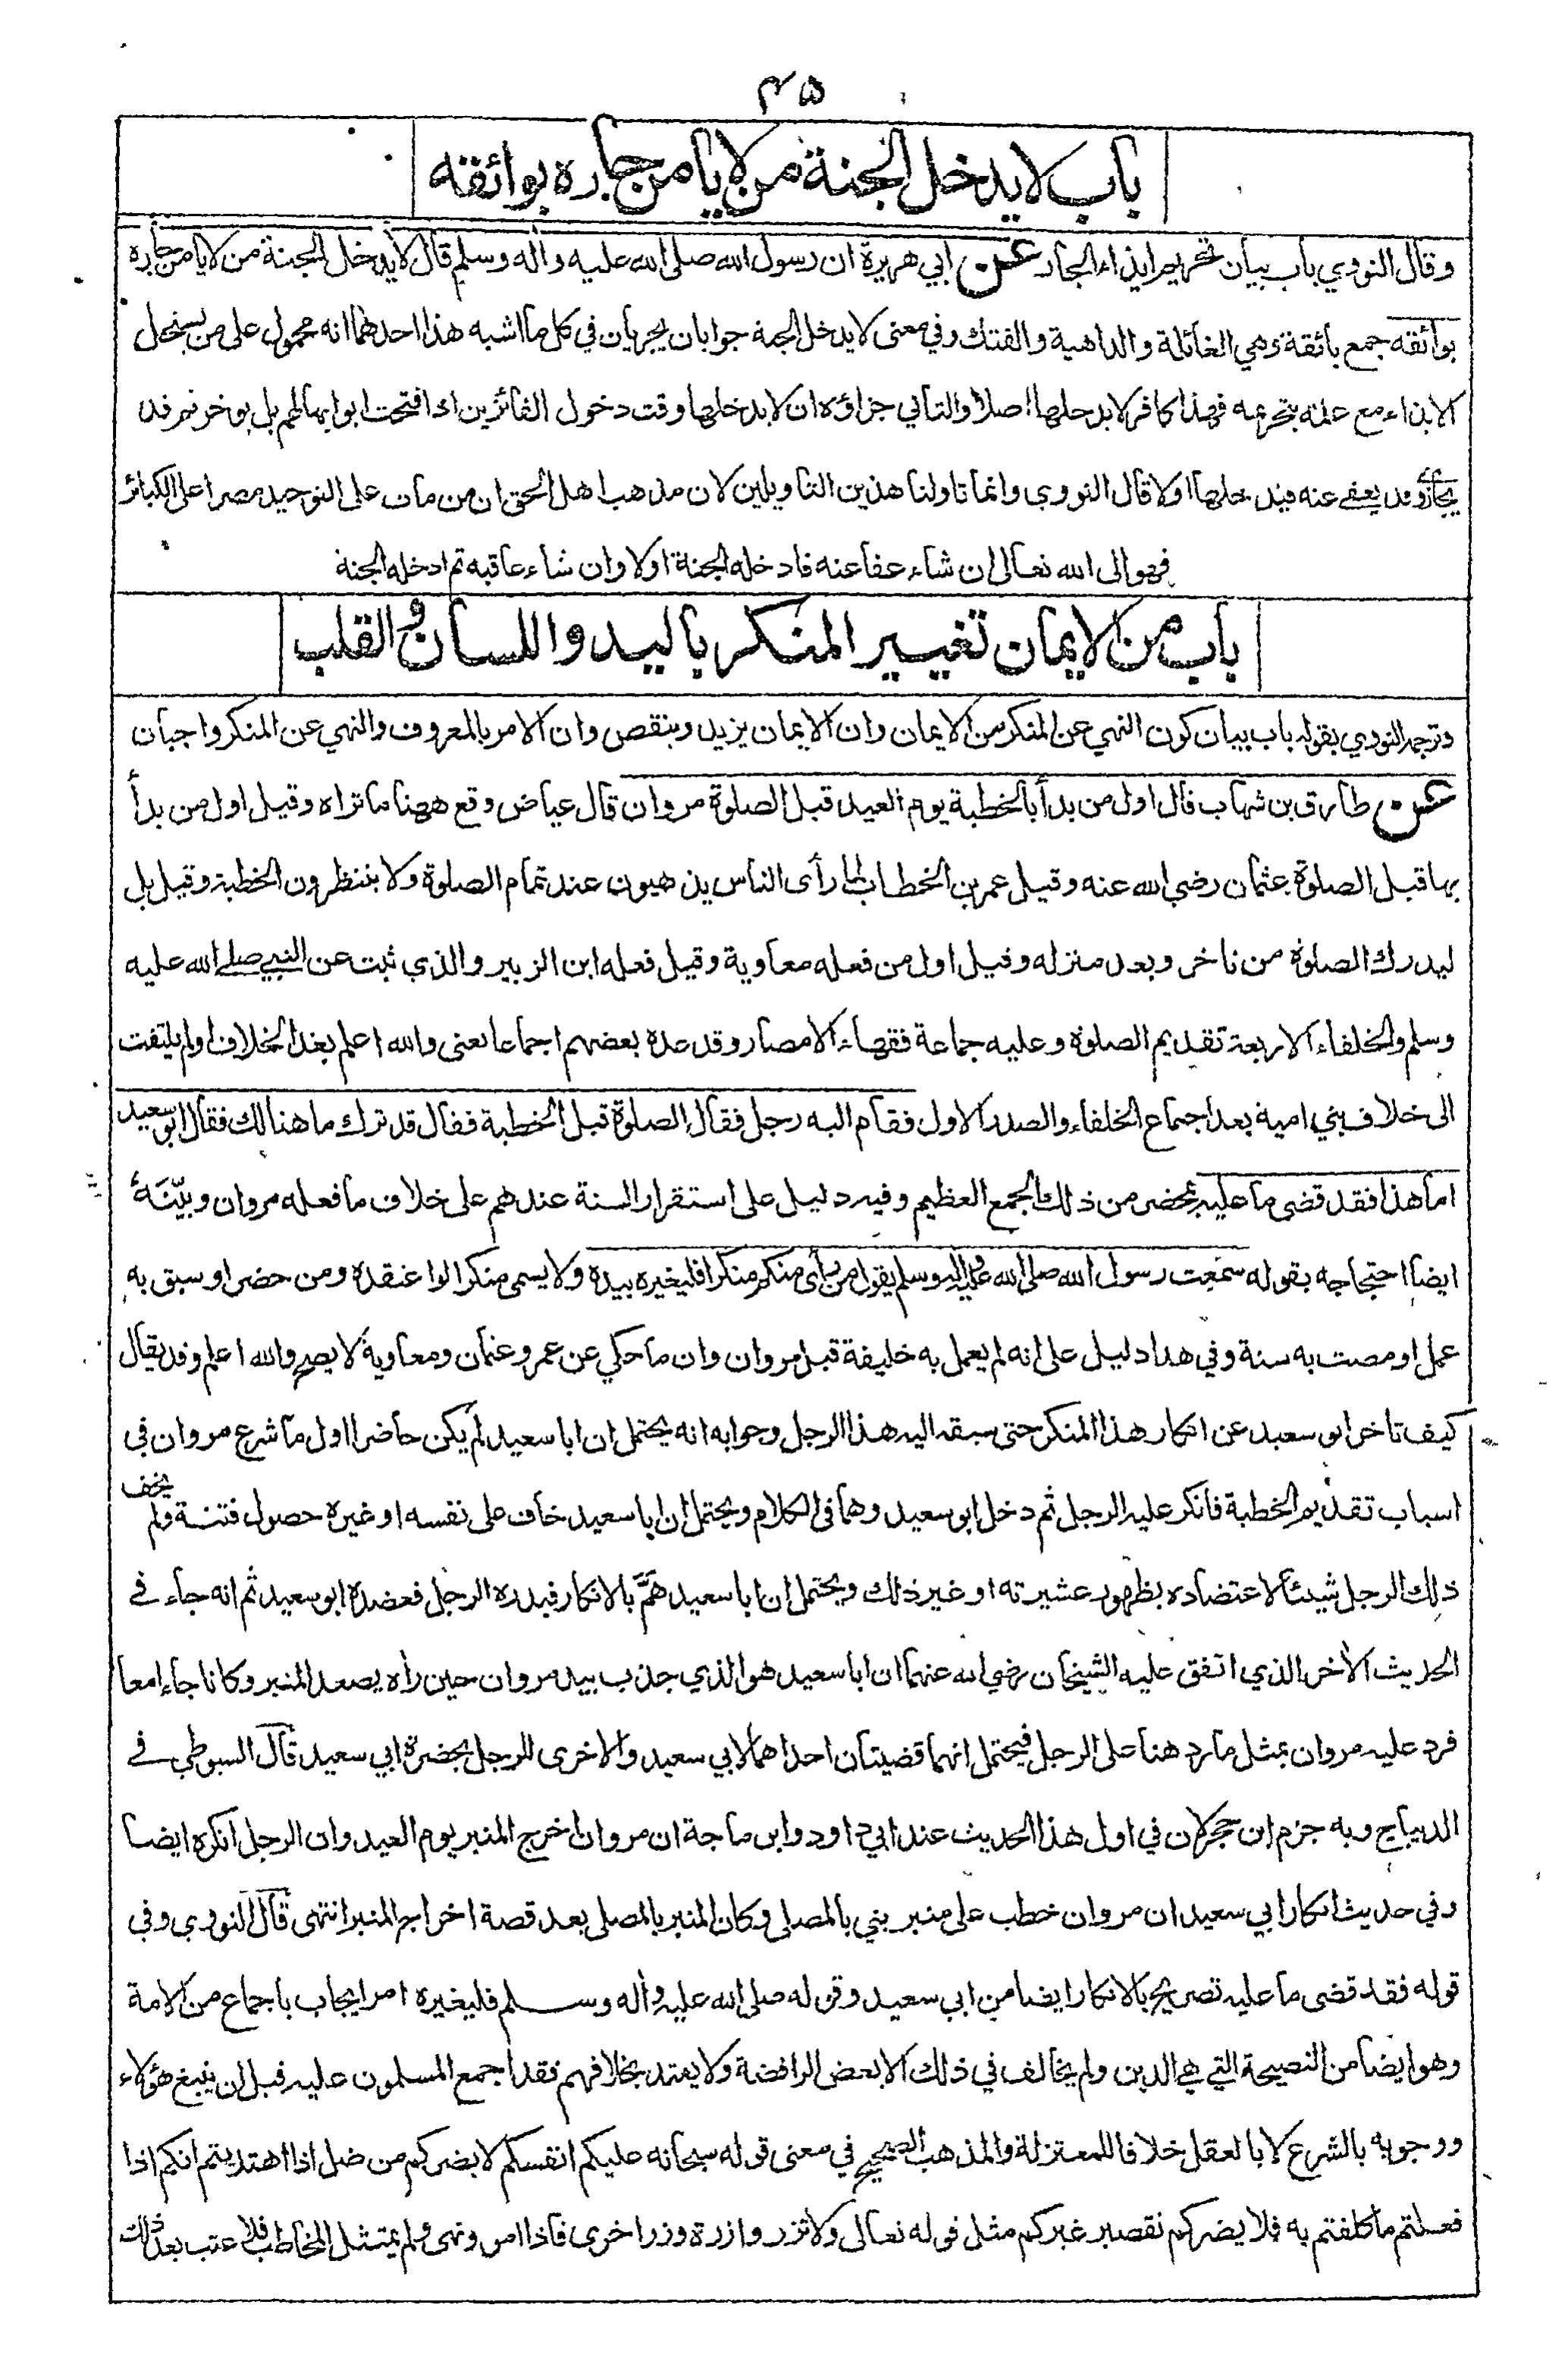 ۴۵
باب لا يدخل الجنة من لا يامن جاره بوائقه
وقال النووي باب بيان تحريم ايذاء الجار عن ابي هريرة ان رسول الله صلى الله عليه واله وسلم قال لا يدخل الجنة من لا يامن جاره
بوائقه جمع بائقة وهي الغائلة والداهية والفتك وفي معنى لا يدخل الجنة جوابان يجريان في كل ما اشبه هذا احدهما انه محمول على من يستحل
الايذاء مع علمه بتحريمه فهذا كافر لا يدخلها اصلا والثاني جزاؤه ان لا يدخلها وقت دخول الفائزين اذا فتحت ابوابها لهم بل يوخر ثم قد
يجازى وقد يعفى عنه فيدخلها اولا قال النووي وانما تاولنا هذين التاويلين لان مذهب اهل الحق ان من مات على التوحيد مصرا على الكبائر
فهو الى الله تعالى ان شاء عفا عنه فادخله الجنة اولا وان شاء عاقبه ثم ادخله الجنة
باب من الايمان تغيير المنكر باليد واللسان والقلب
وترجمه النووي بقوله باب بيان كون النهي عن المنكر من الايمان وان الايمان يزيد وينقص وان الامر بالمعروف والنهي عن المنكر واجبان
عن طارق بن شهاب قال اول من بدأ بالخطبة يوم العيد قبل الصلوة مروان قال عياض وقع ههنا ما تراه وقيل اول من بدأ
بها قبل الصلوة عثمان رضي الله عنه وقيل عمر بن الخطاب لما رأى الناس يذهبون عند تمام الصلوة ولا ينتظرون الخطبة وقيل بل
ليدرك الصلوة من تاخر وبعد منزله وقيل اول من فعله معاوية وقيل فعله ابن الزبير والذي ثبت عن النبي صلى الله عليه
وسلم والخلفاء الاربعة تقديم الصلوة وعليه جماعة فقهاء الامصار وقد عده بعضهم اجماعا يعني والله اعلم بعد الخلاف اولم يلتفت
الى خلاف بني امية بعد اجماع الخلفاء والصدر الاول فقام اليه رجل فقال الصلوة قبل الخطبة فقال قد ترك ما هنالك فقال ابو سعيد
اما هذا فقد قضى ما عليه بمحضر من ذلك الجمع العظيم وفيه دليل على استقرار السنة عندهم على خلاف ما فعله مروان وبيّنه
ايضا احتجاجه بقوله سمعت رسول الله صلى الله عليه واله وسلم يقول من رأى منكم منكرا فليغيره بيده ولا يسمى منكرا لو اعتقده ومن حضر او سبق به
عمل او مضت به سنة وفي هذا دليل على انه لم يعمل به خليفة قبل مروان وان ما حكي عن عمر وعثمان ومعاوية لا يصح والله اعلم وقد يقال
كيف تاخر ابو سعيد عن انكار هذا المنكر حتى سبقه اليه هذا الرجل وجوابه انه يحتمل ان ابا سعيد لم يكن حاضرا اول ما شرع مروان في
اسباب تقديم الخطبة فانكر عليه الرجل ثم دخل ابو سعيد وهما في الكلام ويحتمل ان ابا سعيد خاف على نفسه او غيره حصول فتنة ولم يخف
ذلك الرجل شيئا لاعتضاده بظهور عشيرته او غير ذلك ويحتمل ان ابا سعيد همَّ بالانكار فبدره الرجل فعضده ابو سعيد ثم انه جاء في
الحديث الاخر الذي اتفق عليه الشيخان رضي الله عنهما ان ابا سعيد هو الذي جذب بيد مروان حين رأه يصعد المنبر وكانا جاءا معا
فرد عليه مروان بمثل ما رد هنا على الرجل فيحتمل انهما قضيتان احداهما لابي سعيد والاخرى للرجل بحضرة ابي سعيد قال السيوطي في
الديباج وبه جزم ابن حجر لان في اول هذا الحديث عند ابي داود وابن ماجة ان مروان اخرج المنبر يوم العيد وان الرجل انكره ايضا
وفي حديث انكار ابي سعيد ان مروان خطب على منبر بني بالمصلى وكان المنبر بالمصلى بعد قصة اخراج المنبر انتهى قال النووي وفي
قوله فقد قضى ما عليه تصريح بالانكار ايضا من ابي سعيد وقوله صلى الله عليه واله وسلم فليغيره امر ايجاب باجماع من الامة
وهو ايضا من النصيحة التي هي الدين ولم يخالف في ذلك الا بعض الرافضة ولا يعتد بخلافهم فقد اجمع المسلمون عليه قبل ان ينبغ هؤلاء
ووجوبه بالشرع لا بالعقل خلافا للمعتزلة والمذهب الصحيح في معنى قوله سبحانه عليكم انفسكم لا يضركم من ضل اذا اهتديتم انكم اذا
فعلتم ما كلفتم به فلا يضركم تقصير غيركم مثل قوله تعالى ولا تزر وازرة وزر اخرى فاذا امر ونهى ولم يمتثل المخاطب فلا عتب بعد ذلك